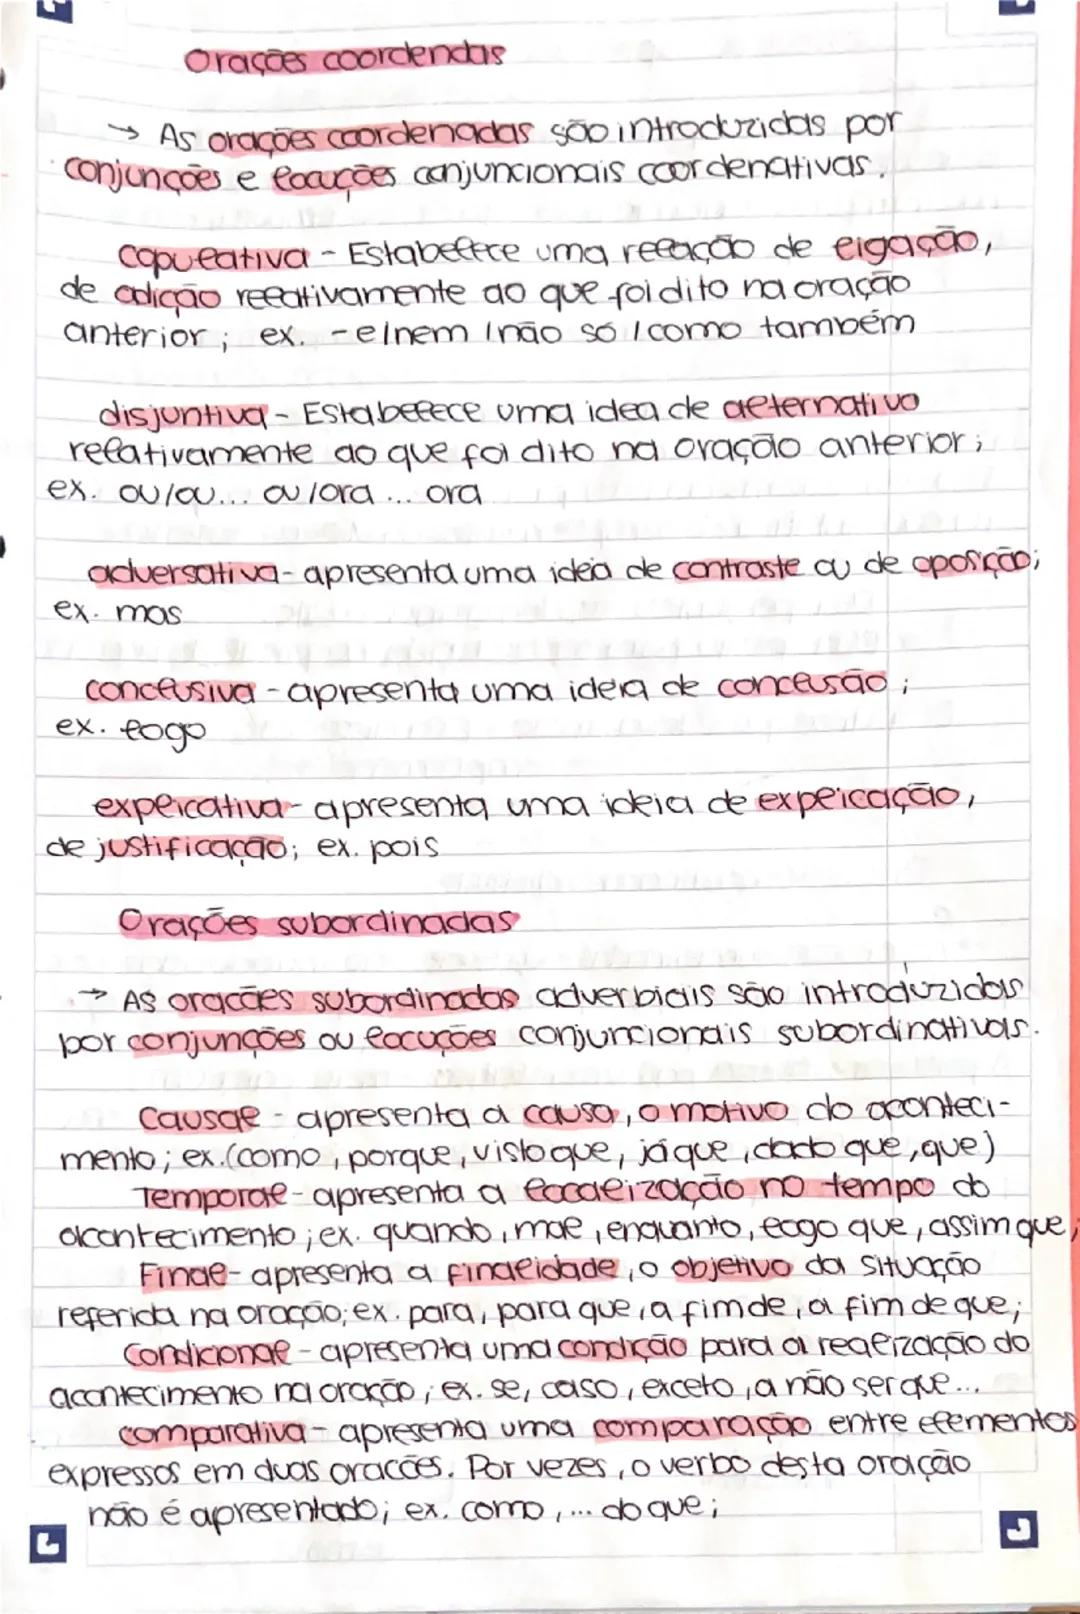 Orações coordendas
→ As orações coordenadas são introduzidas por
conjunções e locuções conjuncionais coordenativas.
copulativa - Estabelece uma relação de ligação,
de adição relativamente ao que foi dito na oração
anterior; ex. - e/nem /não só /como também
disjuntiva - Estabelece uma idea de alternativa
relativamente ao que foi dito na oração anterior;
ex. ou/ou... ou/ora ... ora
adversativa- apresenta uma ideia de contraste ou de oposição;
ex. mas
conclusiva - apresenta uma ideia de conclusão;
ex. logo
explicativa- apresenta uma ideia de explicação,
de justificação; ex. pois
Orações subordinadas
→ As oracões subordinadas adverbiais são introduzidas
por conjunções ou locuções conjuncionais subordinativas.
Causal - apresenta a causa, o motivo do aconteci-
mento; ex.(como, porque, visto que, já que, dado que, que)
Temporal- apresenta a localização no tempo do
acontecimento; ex. quando, mal, enquanto, logo que, assim que,
Final- apresenta a finalidade, o objetivo da situação
referida na oração; ex. para, para que, a fim de, a fim de que;
Condicional - apresenta uma condição para a realização do
acontecimento na oração; ex. se, caso, exceto, a não ser que...
comparativa - apresenta uma comparação entre elementos
expressos em duas oracões. Por vezes, o verbo desta oração
não é apresentado; ex. como, ... do que;